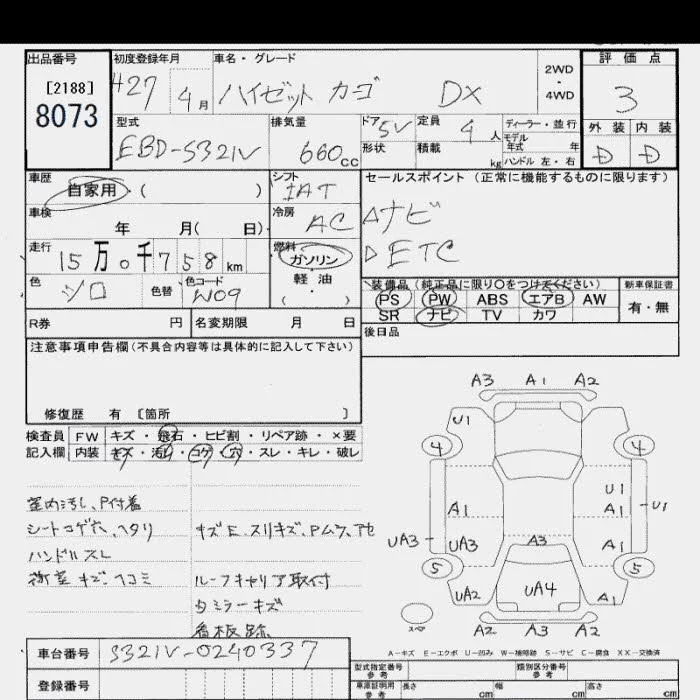 出品番号 初度登録年月 車名・グレード 2WD・4WD 評価点
[2188]
8073
H27 4月 ハイゼット カーゴ DX 3
型式 排気量 ドア 5V 定員 4人 ディーラー・並行 外装 内装
EBD-S321V 660cc 形状 積載 kg モデル年式 年 ハンドル 左・右 D D
車歴 シフト セールスポイント (正常に機能するものに限ります)
自家用 ( ) IAT
車検 冷房 △ナビ
年 月( 日) AC
走行 燃料 △ETC
15万0千758km ガソリン
色 色替 色コード 軽・油
シロ W09 ( )
装備品 (純正品に限り○をつけてください) 新車保証書
PS PW ABS エアB AW 有・無
SR ナビ TV カワ
R券 円 名変期限 月 日 後日品
注意事項申告欄(不具合内容等は具体的に記入して下さい)
修復歴 有 [箇所 ]
検査員 FW キズ・飛石・ヒビ割・リペア跡・×要
記入欄 内装 キズ・汚れ・コゲ・穴・スレ・キレ・破レ
室内汚し、P付着
シートコゲ穴、ヘタリ キズE、スリキズ、Pムラ、アセ
ハンドルスレ
荷室キズ、ヘコミ ルーフキャリア取付
タミラーキズ
看板跡
A3 A1 A2
U1
4 4
U1
A1 A1 U1
UA3 UA3 A3 A1
5 5
UA2 UA4 A1
スペア A2 A3 A2
A-キズ E-エクボ U-凹み W-補修跡 S-サビ C-腐食 XX-交換済
車台番号 S321V-0240337
登録番号
型式指定番号 類別区分番号
車庫証明用参考 長さ cm 幅 cm 高さ cm